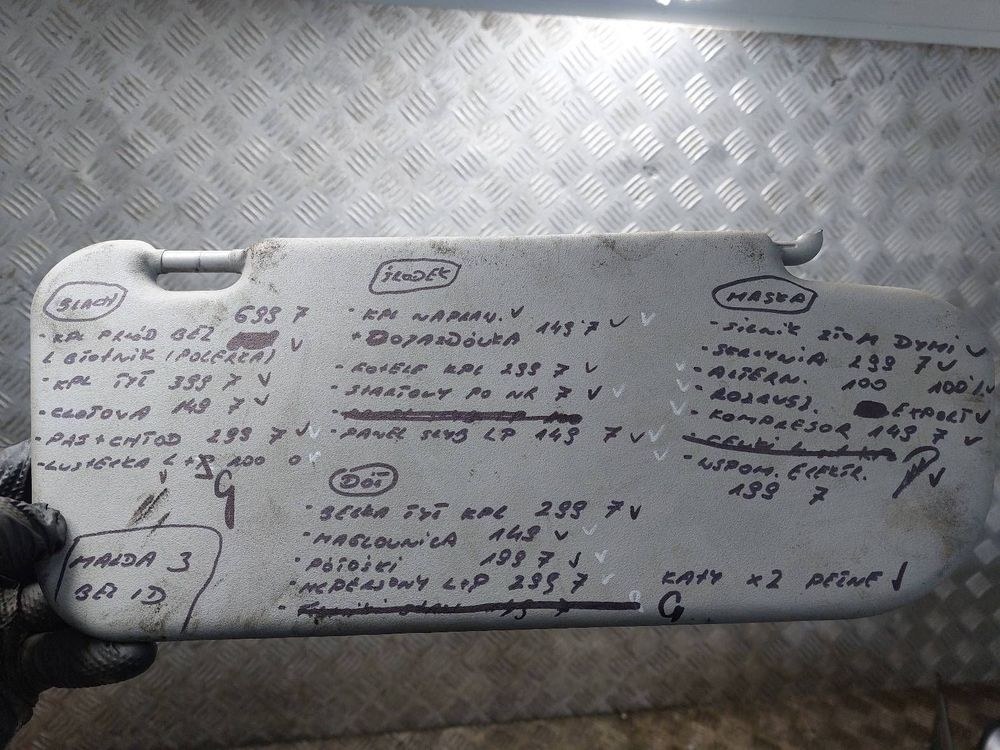 BLACH
699 7
- KPL PRZÓD BEZ
L BŁOTNIK (POLERKA) V
- KPL TYŁ 399 7 V
149 7 V
- PAS + CHŁOD 299 7 V
- LUSTERKA L+P 100 0
G
MAZDA 3
BEZ ID
ŚRODEK
- KPL NAPRAW. V
+ DOJAZDÓWKA 149 7 V
- FOTELE KPL 299 7 V
- STARTOWY PO NR 7 V
- PANEL SZYB LP 149 7 V
DÓŁ
- BELKA TYŁ KPL 299 7 V
- MAGLOWNICA 149 V
- PÓŁOŚKI 199 7
- MCPERSONY L+P 299 7
G
MASKA
- SILNIK ZŁOM DYMI V
- SKRZYNIA 299 7 V
- ALTERN. 100
- ROZRUSZ. EXPORT V
- KOMPRESOR 149 7 V
- WSPOM. ELEKTR.
199 7
KATY x2 PEŁNE